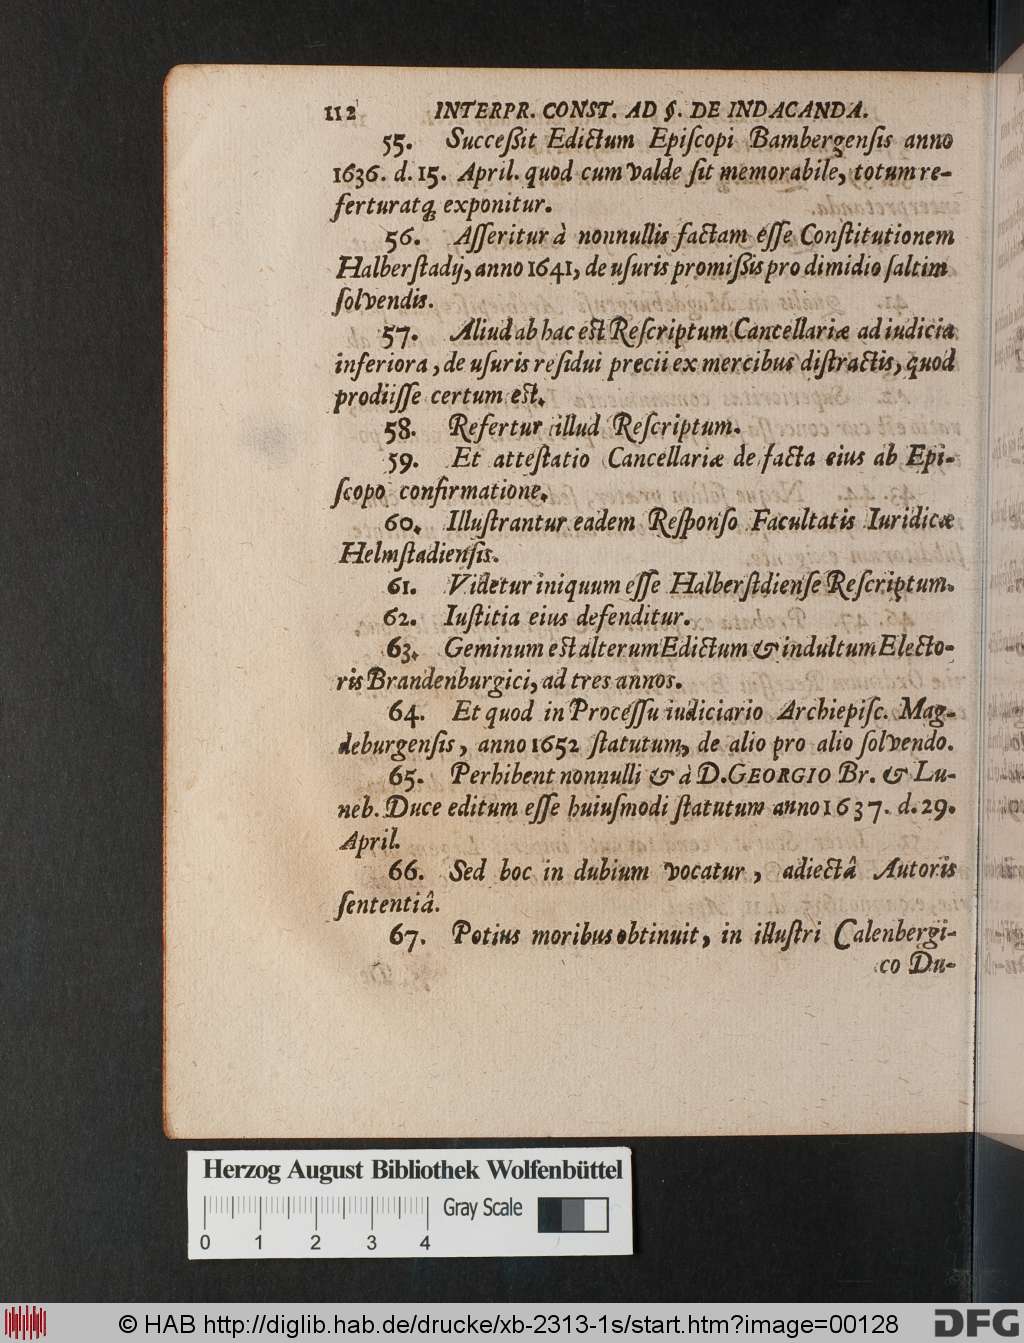 112 INTERPR. CONST. AD §. DE INDACANDA.
55. Succeſſit Edictum Epiſcopi Bambergenſis anno
1636. d. 15. April. quod cum valde ſit memorabile, totum re-
ferturatq; exponitur.
56. Aſſeritur à nonnullis factam eſſe Conſtitutionem
Halberſtadij, anno 1641, de uſuris promiſſis pro dimidio ſaltim
ſolvendis.
57. Aliud ab hac eſt Reſcriptum Cancellariæ ad iudicia
inferiora, de uſuris reſidui precii ex mercibus diſtractis, quod
prodiiſſe certum eſt.
58. Refertur illud Reſcriptum.
59. Et atteſtatio Cancellariæ de facta eius ab Epi-
ſcopo confirmatione.
60. Illuſtrantur eadem Reſponſo Facultatis Iuridicæ
Helmſtadienſis.
61. Videtur iniquum eſſe Halberſtdienſe Reſcriptum.
62. Iuſtitia eius defenditur.
63. Geminum eſt alterum Edictum & indultum Electo-
ris Brandenburgici, ad tres annos.
64. Et quod in Proceſſu iudiciario Archiepiſc. Mag-
deburgenſis, anno 1652 ſtatutum, de alio pro alio ſolvendo.
65. Perhibent nonnulli & à D. GEORGIO Br. & Lu-
neb. Duce editum eſſe huiuſmodi ſtatutum anno 1637. d. 29.
April.
66. Sed hoc in dubium vocatur, adiectâ Autoris
ſententiâ.
67. Potius moribus obtinuit, in illuſtri Calenbergi-
co Du-
Herzog August Bibliothek Wolfenbüttel
Gray Scale
0 1 2 3 4
© HAB http://diglib.hab.de/drucke/xb-2313-1s/start.htm?image=00128
DFG